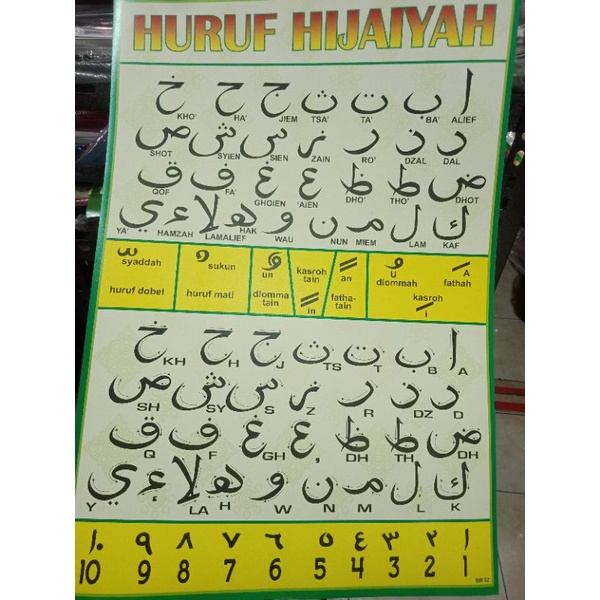 HURUF HIJAIYAH
ا ب ت ث ج ح خ
KHO' HA' JIEM TSA' TA' BA' ALIEF
د ذ ر ز س ش ص
SHOT SYIEN SIEN ZAIN RO' DZAL DAL
ض ط ظ ع غ ف ق
QOF FA' GHOIEN 'AIEN DHO' THO' DHOT
ك ل م ن و ه لا ء ي
YA' HAMZAH LAMALIEF HAK WAU NUN MIEM LAM KAF
syaddah
huruf dobel
sukun
huruf mati
un
dlomma tain
kasroh tain
in
an
fatha-tain
U
dlommah
A
fathah
kasroh
i
ا ب ت ث ج ح خ
KH H J TS T B A
د ذ ر ز س ش ص
SH SY S Z R DZ D
ض ط ظ ع غ ف ق
Q F GH ' DH TH DH
ك ل م ن و ه لا ء ي
Y LA H W N M L K
١٠ ٩ ٨ ٧ ٦ ٥ ٤ ٣ ٢ ١
10 9 8 7 6 5 4 3 2 1